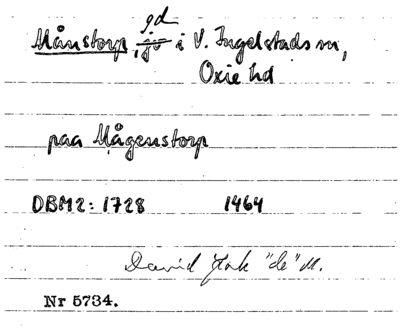 gd
Månstorp, jo i V. Ingelstads sn,
Oxie hd
paa Mågenstorp
DBM2: 1728 1464
David "de" M.
Nr 5734.